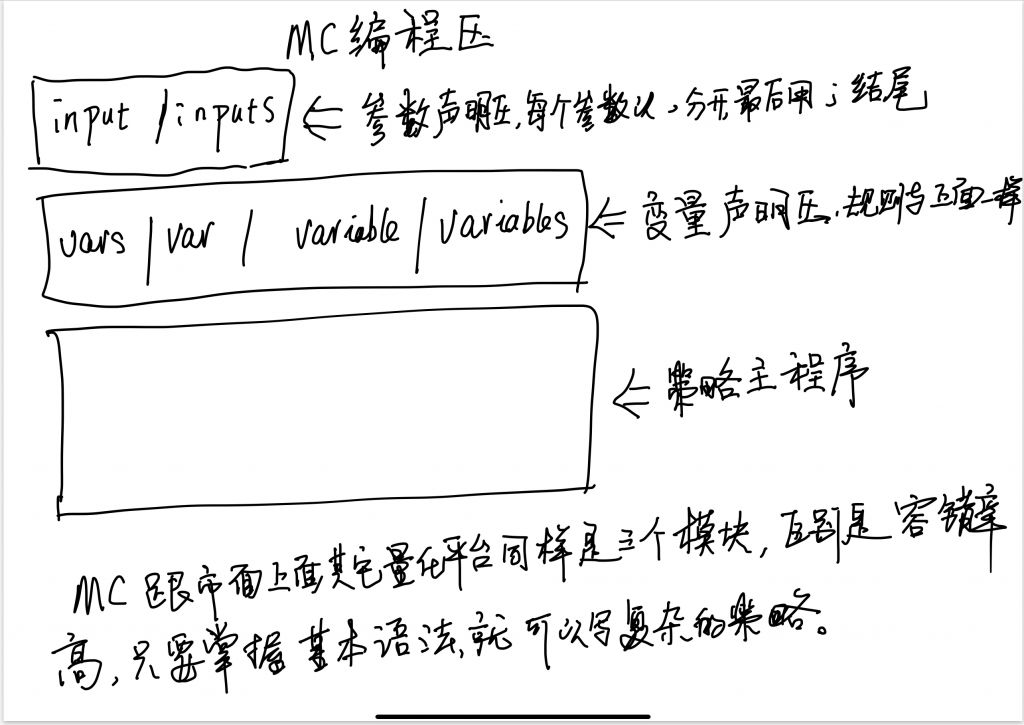 MC编程区
input / inputs ⇐ 参数声明区,每个参数以,分开最后用;结尾
vars | var | variable | variables ⇐ 变量声明区,规则与上面一样
⇐ 策略主程序
MC跟市面上面其它量化平台同样是三个模块,区别是容错率
高,只要掌握基本语法,就可以写复杂的策略。